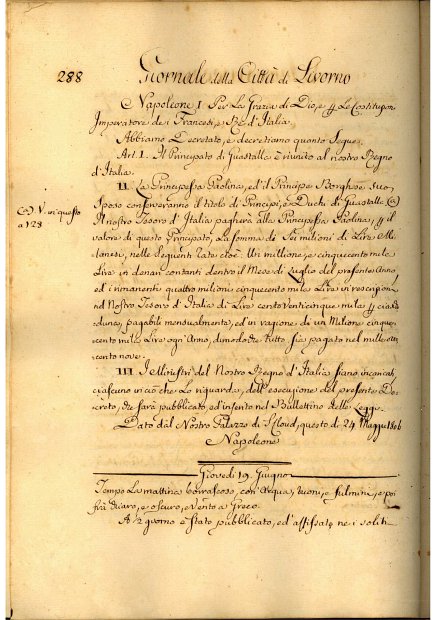 288 Giornale della Città di Livorno
Napoleone I Per La Grazia di Dio, e Le Costituzioni
Imperatore de i Francesi, e Re d'Italia.
Abbiamo Decretato, e decretiamo quanto Segue.
Art. I. Il Principato di Guastalla è riunito al nostro Regno
d'Italia.
II. La Principessa Paolina, ed il Principe Borghese suo
Sposo conserveranno il titolo di Principi, e Duchi di Guastalla (a)
(a) V. in questo
a 128
Il nostro Tesoro d'Italia pagherà alla Principessa Paolina, il
valore di questo Principato, La somma di Sei milioni di Lire Mi-
lanesi, nelle seguenti rate cioè. Un milione, e cinquecento mila
Lire in denari contanti dentro il Mese di Luglio del presente Anno,
ed i rimanenti quattro milioni cinquecento mila Lire in rescrizioni
nel Nostro Tesoro d'Italia di Lire cento venticinque mila
duna, pagabili mensualmente, ed in ragione di un Milione cinque-
cento mila Lire ogni Anno, dimodoche tutto sia pagato nel mille otto
cento nove.
III I Ministri del Nostro Regno d'Italia siano incaricati,
ciascuno in ciò che Lo riguarda, dell'esecuzione del presente De-
creto, che sarà pubblicato, ed inserito nel Bullettino delle Leggi.
Dato dal Nostro Palazzo di S. Cloud, questo dì 24 Maggio 1806
Napoleone
Giovedì 19. Giugno
Tempo La mattina burrascoso, con Acqua, tuoni, e fulmini, e poi
frà chiaro, e oscuro, e vento a Greco.
A 2 giorno è stato pubblicato, ed affissato ne i soliti